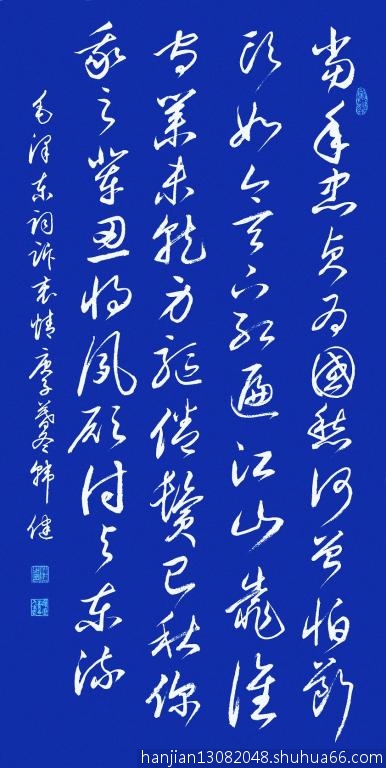 当年忠贞为國愁何曾怕断
头如今天下红遍江山靠谁
守業未就身躯倦鬓已秋你
我之辈忍将夙愿付与东流
毛泽东词诉衷情庚子暮冬韩健
hanjian13082048.shuhua66.com